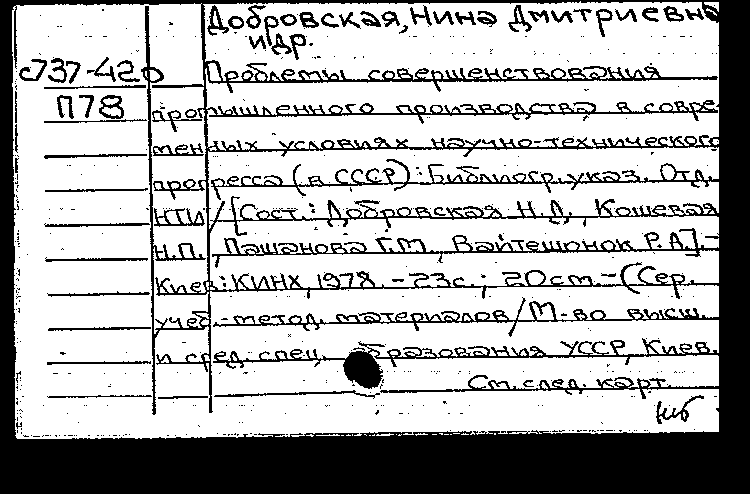 Добровская, Нина Дмитриевна
и др.
с737-420 Проблемы совершенствования
П78 промышленного производства в совре-
менных условиях научно-технического
прогресса (в СССР): Библиогр. указ. Отд.
НТИ/[Сост.: Добровская Н.Д., Кошевая
Н.П., Пашанова Г.М., Вайтешонок Р.А.].-
Киев: КИНХ, 1978. - 23с.; 20ст.-(Сер.
учеб.-метод. материалов/М-во высш.
и сред. спец. образования УССР, Киев.
См. след. карт.